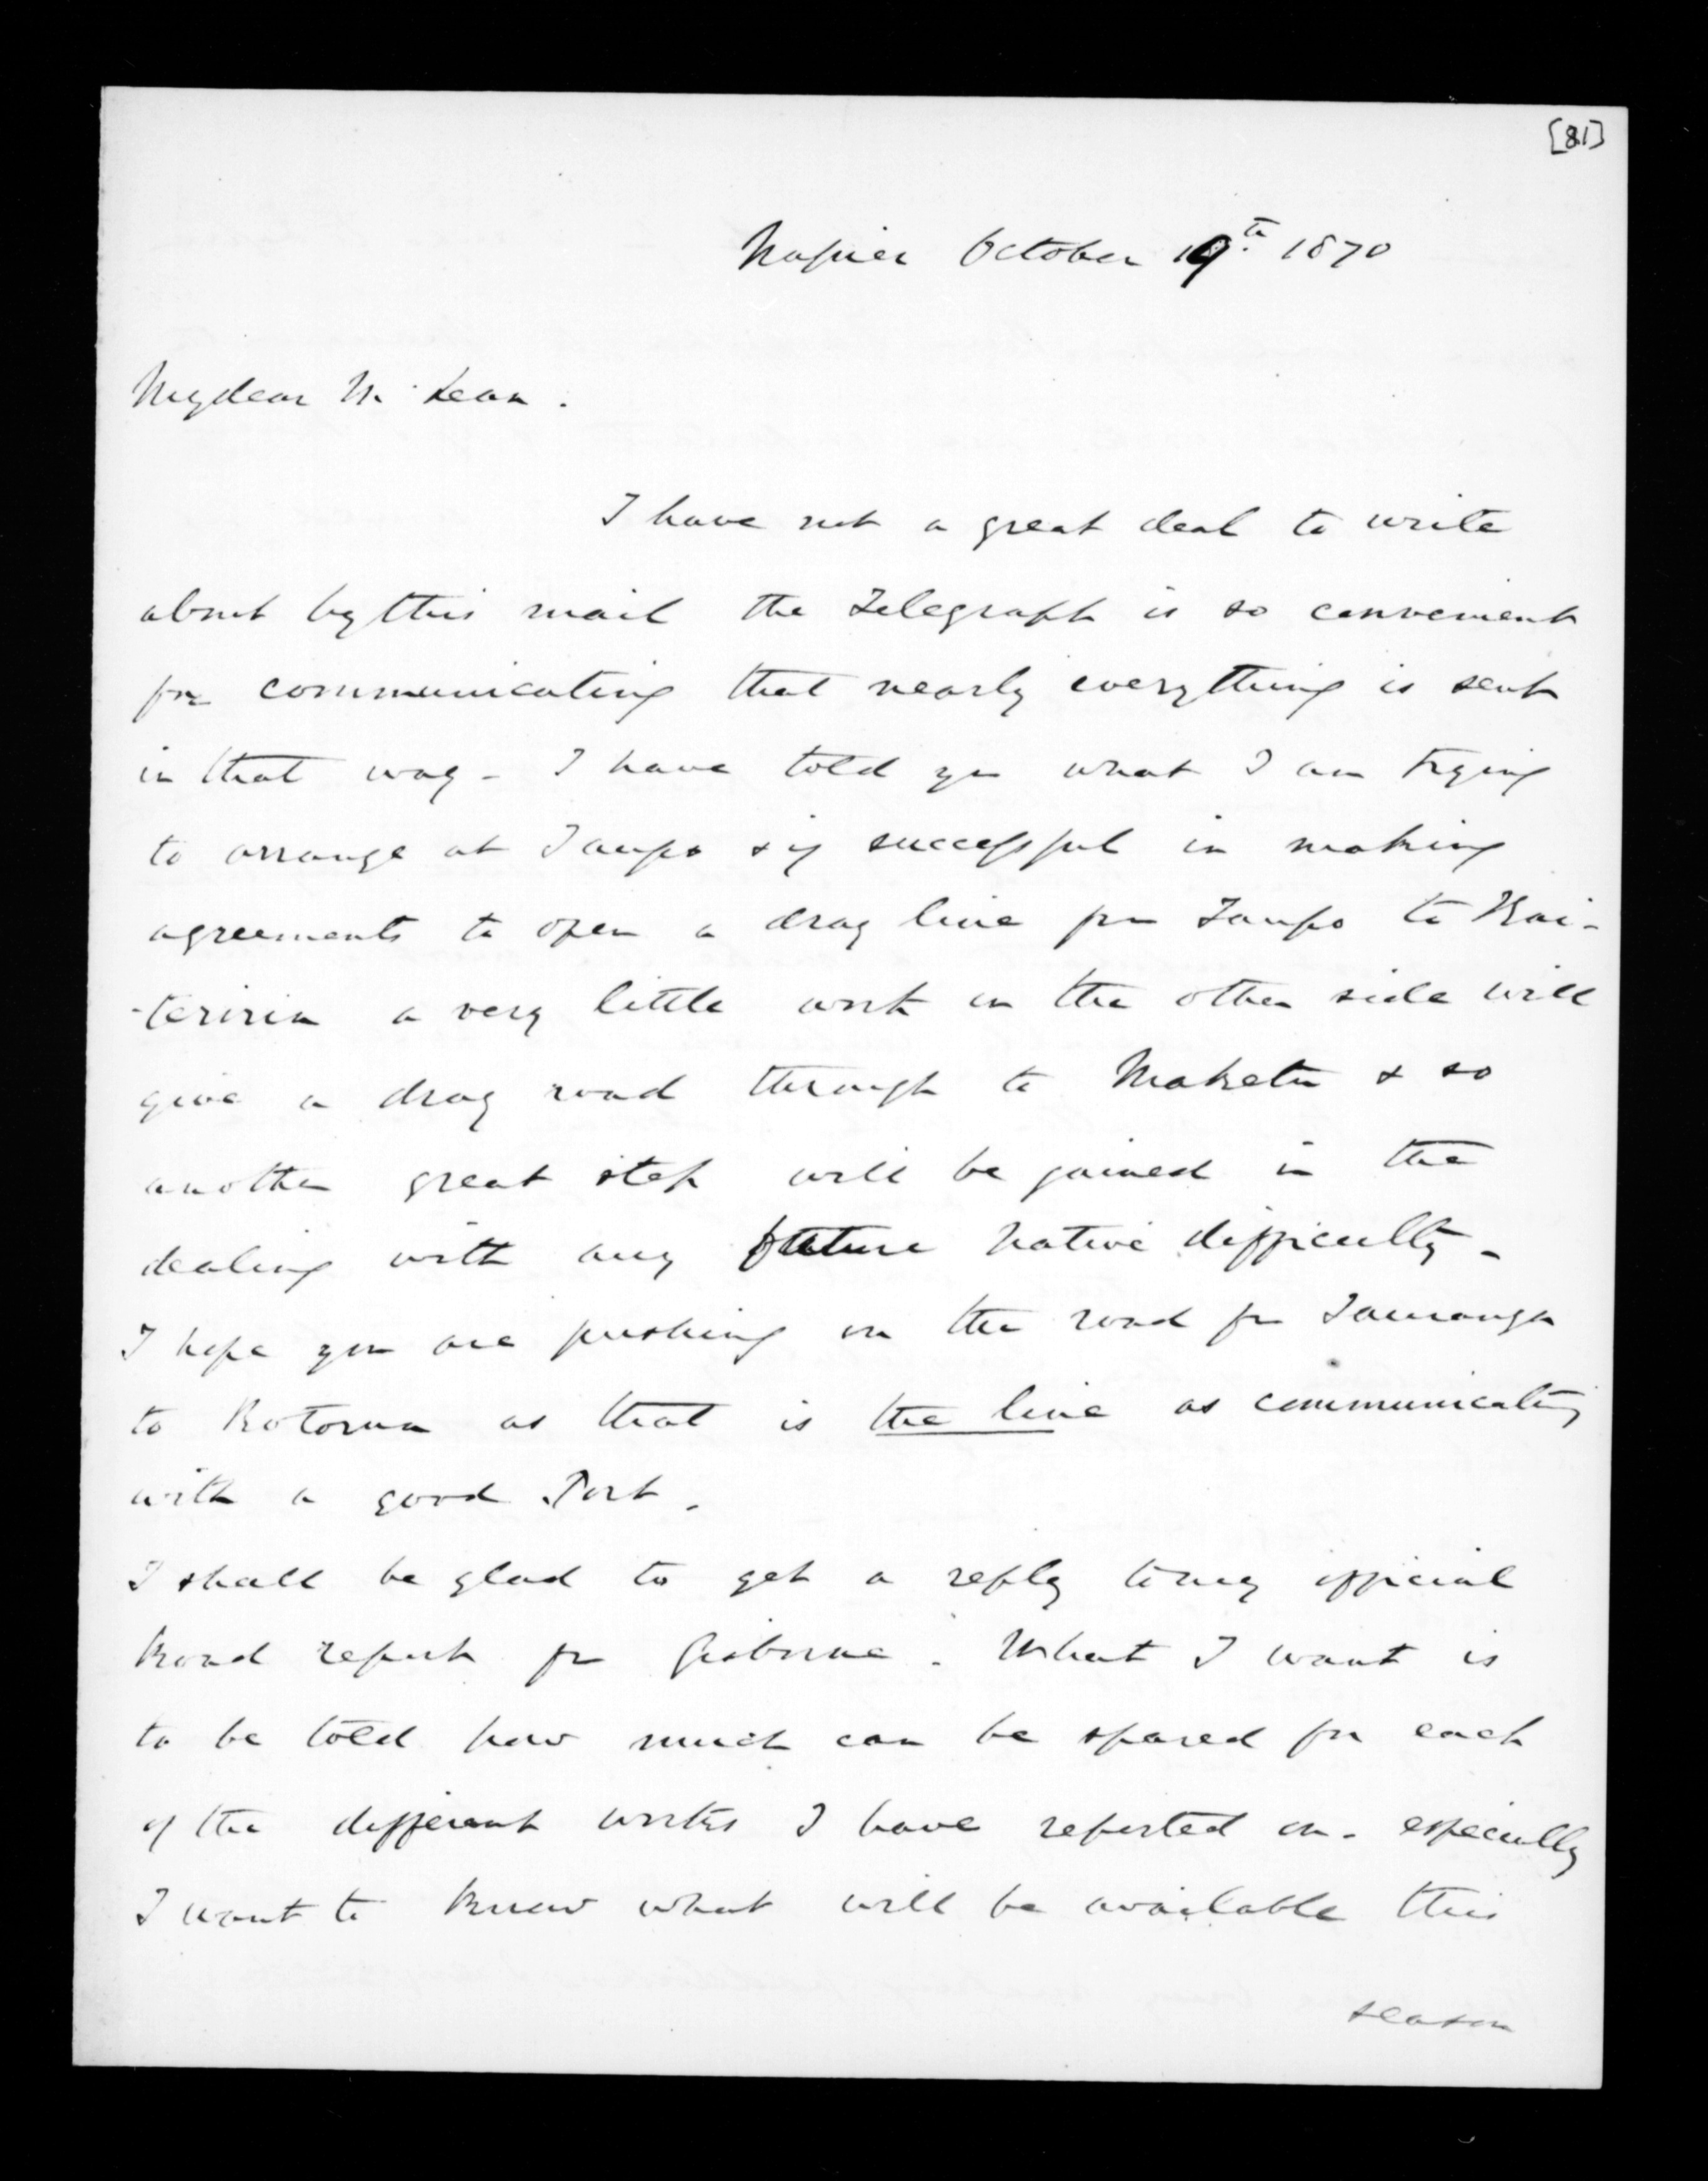 [81]
Napier October 19th 1870
My dear McLean.
I have not a great deal to write
about by this mail the Telegraph is so convenient
for communicating that nearly everything is sent
in that way - I have told you what I am trying
to arrange at Taupo & if successful in making
agreements to open a dray line from Taupo to Kai-
-teriria a very little work on the other side will
give a dray road through to Maketu & so
another great step will be gained in the
dealing with any future native difficulty -
I hope you are pushing on the road from Tauranga
to Rotorua as that is the line as communicating
with a good Port.
I shall be glad to get a reply to my official
Road report from Gisborne. What I want is
to be told how much can be spared for each
of the different works I have reported on - especially
I want to know what will be available this
season